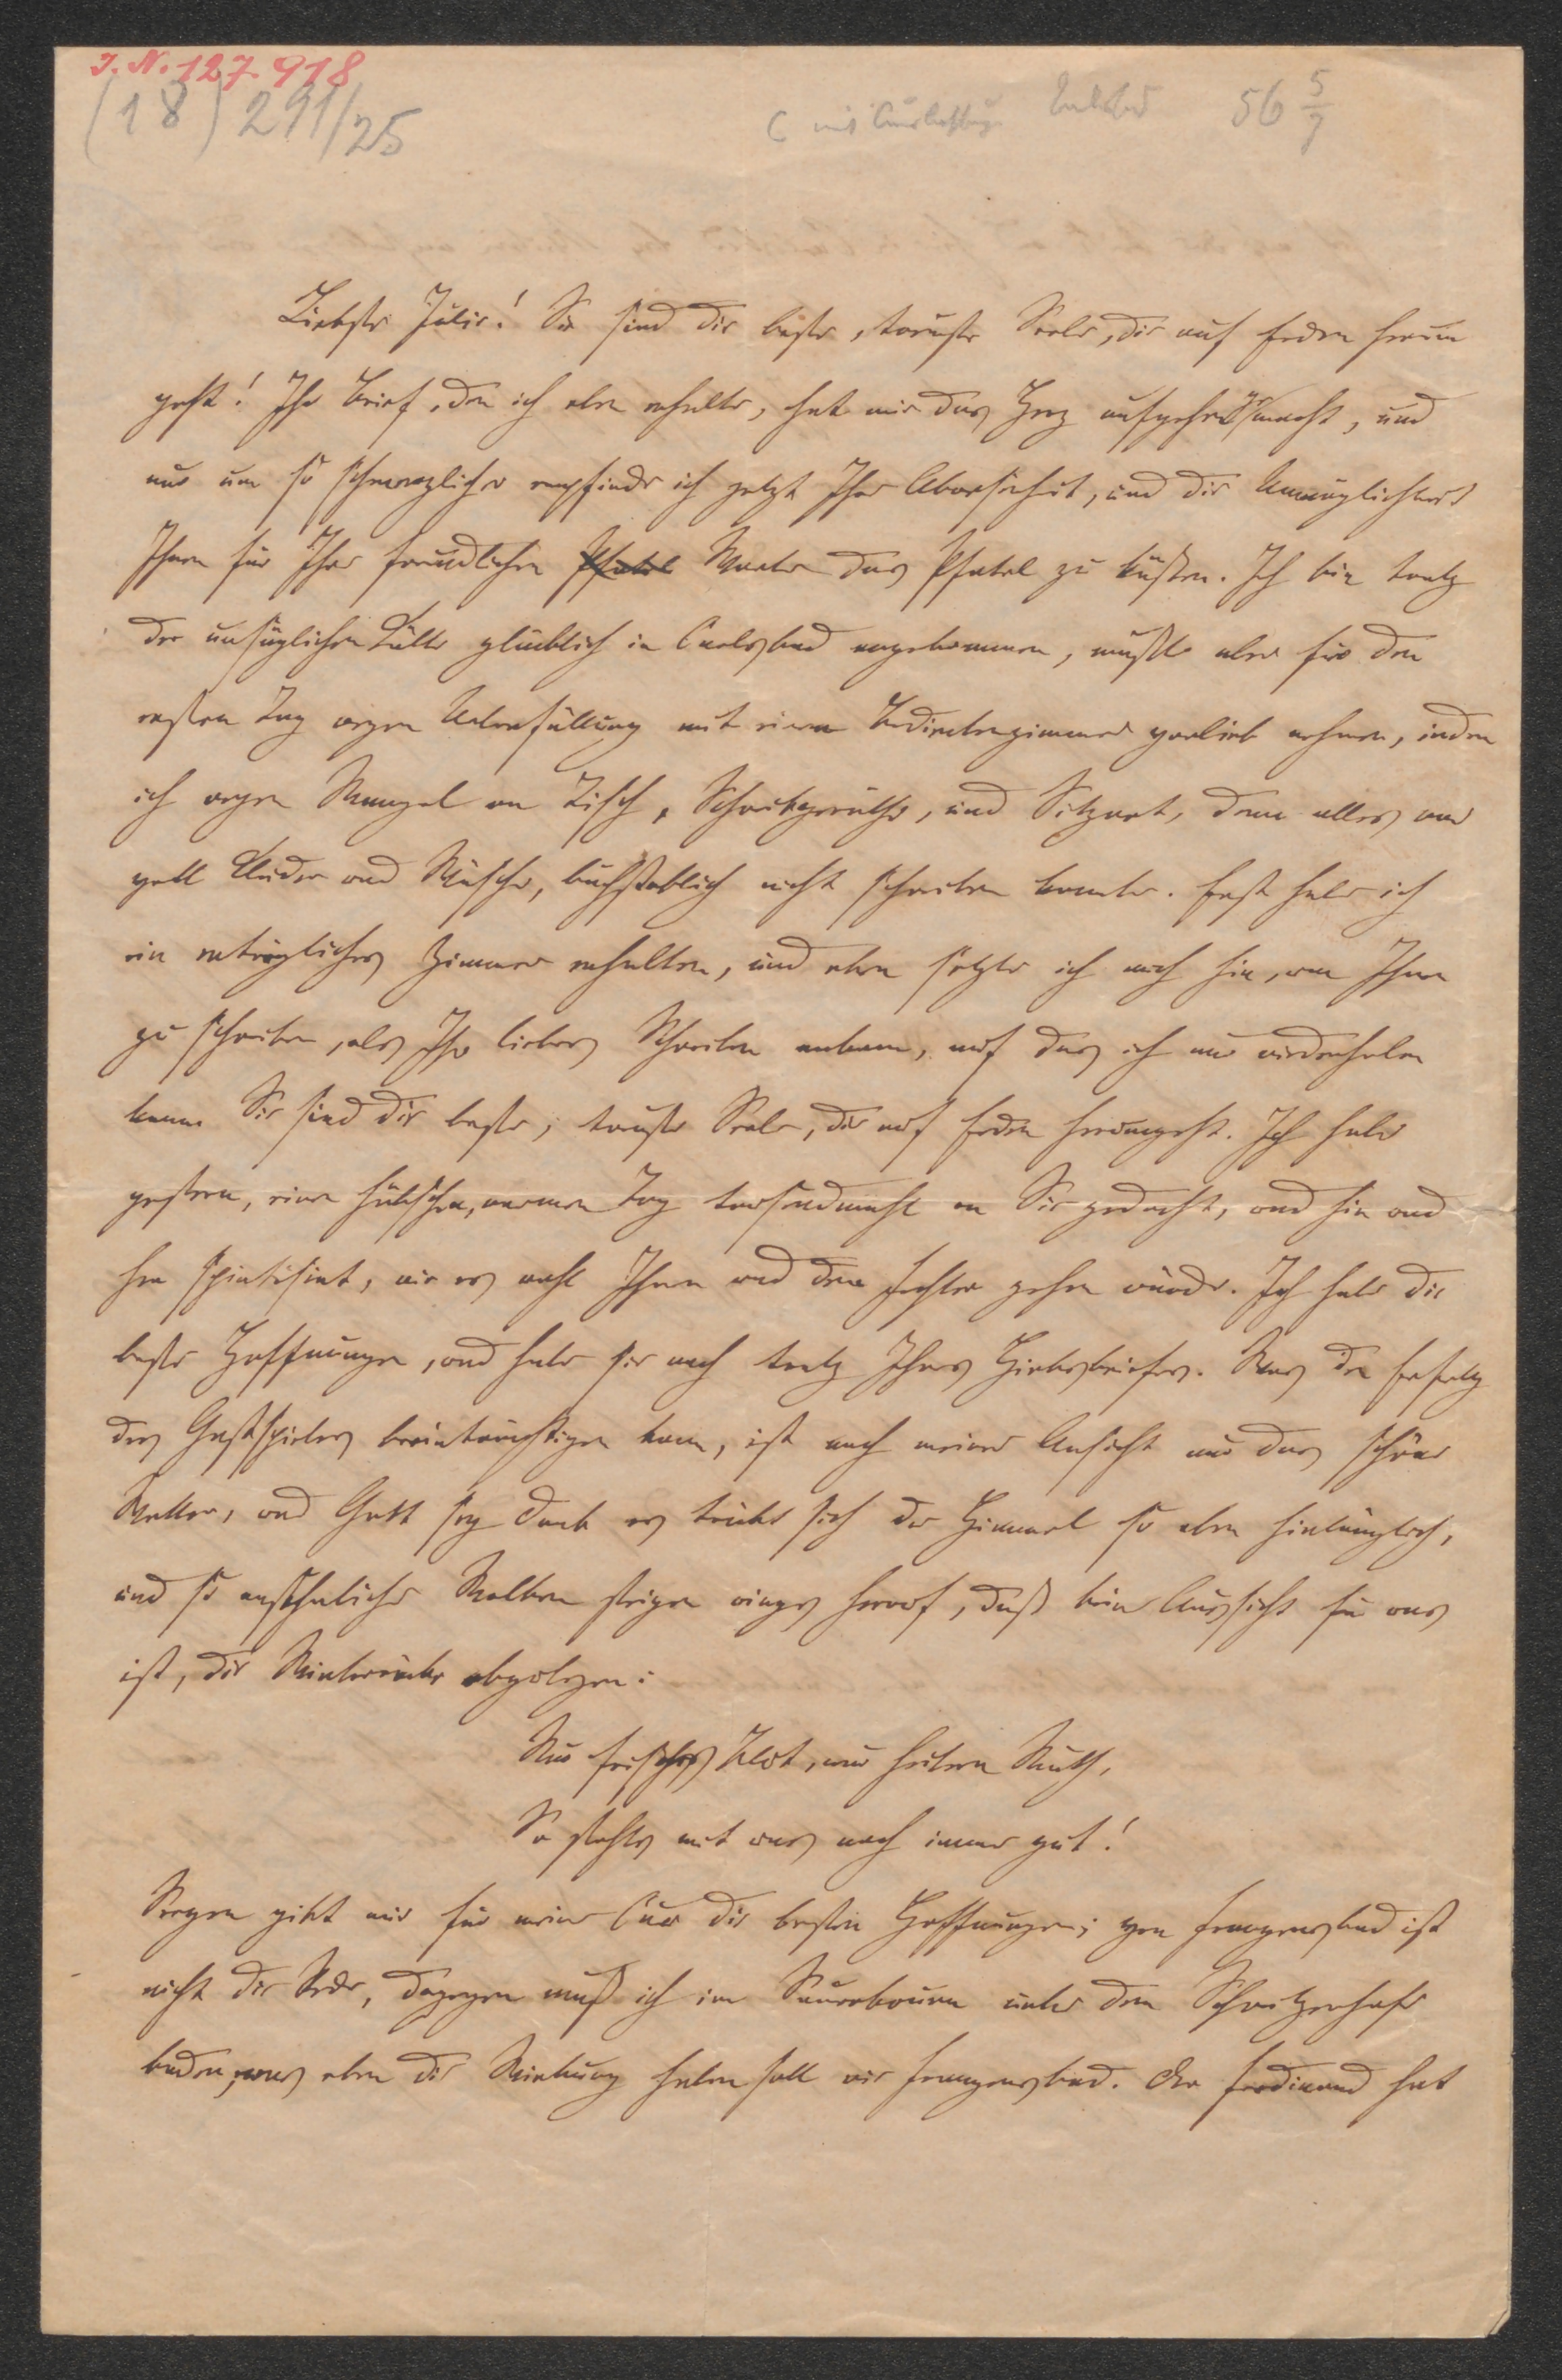 I. N. 127.918
(18) 291/25
56 5/7
Liebste Julie! Sie sind die beste, treuste Seele, die auf Erden herum
geht! Ihr Brief, den ich eben erhalte, hat mir das Herz aufgehen gemacht, und
nur um so schmerzlicher empfinde ich jetzt Ihre Abwesenheit, und die Unmöglichkeit
Ihnen für Ihre freundlichen Pfatel Worte das Pfatel zu küssen. Ich bin trotz
der unsäglichen Kälte glücklich in Carlsbad angekommen, mußte aber für den
ersten Tag wegen Ueberfüllung mit einem Bedientenzimmer vorlieb nehmen, indem
ich wegen Mangel an Tisch, Schreibgeräthe, und Sitzort, denn alles war
voll Kleider und Wäsche, buchstäblich nicht schreiben konnte. Erst habe ich
ein erträgliches Zimmer erhalten, und eben setzte ich mich hin, um Ihnen
zu schreiben, als Ihr liebes Schreiben ankam, auf das ich nur wiederholen
kann Sie sind die beste, treuste Seele, die auf Erden herumgeht. Ich habe
gestern, einen hübschen, warmen Tag tausendmahl an Sie gedacht, und hin und
her spintisirt, wie es wohl Ihnen und dem Fechter gehen würde. Ich habe die
beste Hoffnungen, und habe sie noch trotz Ihres Hiobsbriefes. Was den Erfolg
des Gastspieles beeinträchtigen kann, ist nach meiner Ansicht nur das schöne
Wetter, und Gott sey Dank es trübt sich der Himmel so eben hinlänglich,
und so ansehnliche Wolken steigen rings herauf, daß keine Aussicht für uns
ist, die Winterröcke abzulegen:
Nur frisches Blut, nur heitern Muth,
So stehts mit uns noch immer gut!
Seegen gibt mir für meine Cur die besten Hoffnungen; von Franzensbad ist
nicht die Rede, dagegen muß ich im Sauerbrunn unter dem
baden, was eben die Wirkung haben soll wie Franzensbad. Der Ferdinand hat